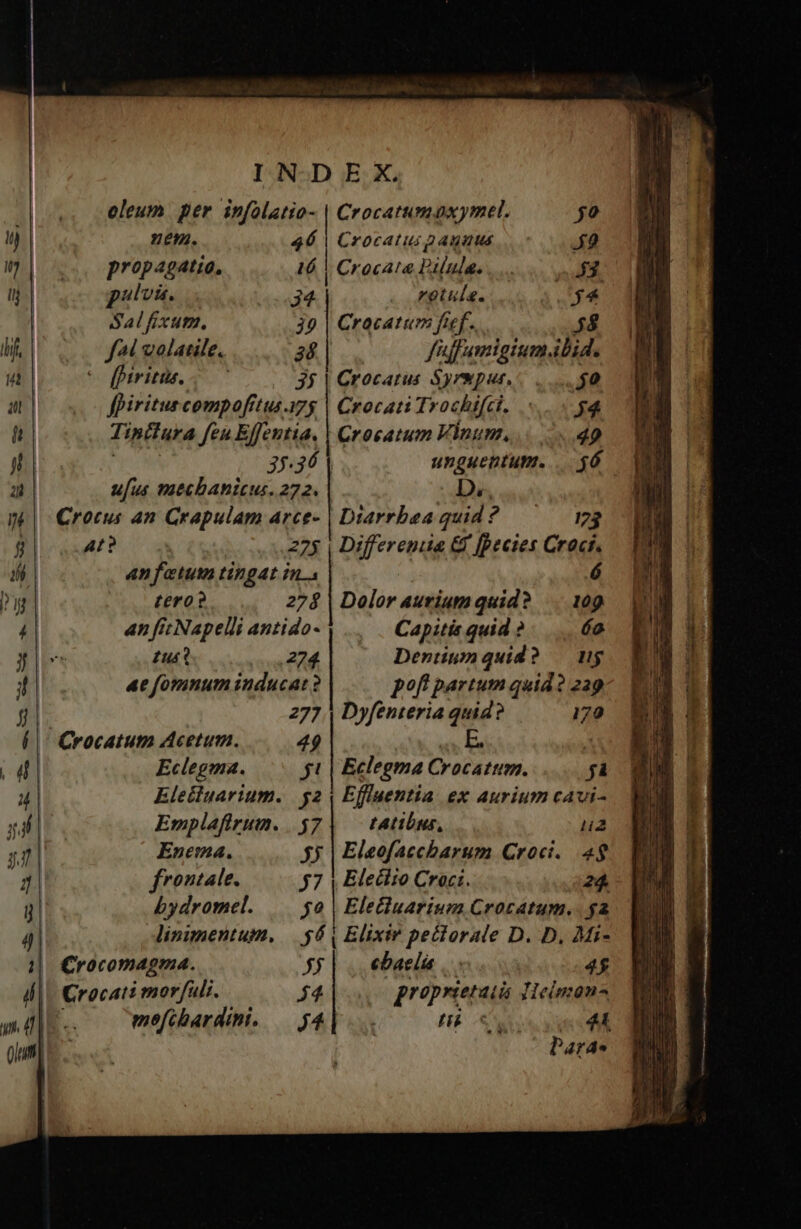 INDEX.
oleum per inſolatio-
nem. 46
propagatio. 16
pulvis. 34
Sal fixum. 39
ſal volatile. 38
ſpiritus. 35
ſpiritus compoſitus. 175
Tinctura ſeu Eſſentia.
35.36
uſus mechanicus. 272.
Crocus an Crapulam arce-
at? 275
an fœtum tingat in u-
tero? 278
an ſit Napelli antido-
tus? 274
ac ſomnum inducat?
277
Crocatum Acetum. 49
Eclegma. 51
Electuarium. 52
Emplaſtrum. 57
Enema. 55
frontale. 57
hydromel. 50
linimentum, 56
Crocomagma. 55
Crocati morſuli. 54
moſchardini. 54
Crocatum oxymel. 50
Crocatus pannus 59
Crocatæ Pilulæ. 53
rotulæ. 54
Crocatum ſief. 58
ſuffumigium. ibid.
Crocatus Syrupus. 50
Crocati Trochiſci. 54
Crocatum Vinum. 49
unguentum. 56
D.
Diarrhea quid? 173
Differentia & ſpecies Croci.
6
Dolor aurium quid? 109
Capitis quid? 60
Dentium quid? 115
poſt partum quid? 229
Dyſenteria quid? 170
E.
Eclegma Crocatum. 51
Effluentia ex aurium cavi-
tatibus, 112
Elæoſaccharum Croci. 48
Electio Croci. 24
Electuarium Crocatum. 52
Elixir pectorale D. D. Mi-
chaelis 45
proprietatis Helmon-
tii 41
Para-